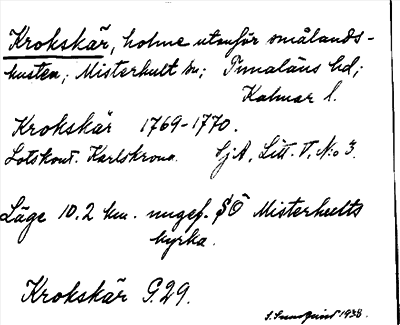 Krokskär, holme utanför smålands-
kusten; Misterhult sn; Tunaläns hd;
Kalmar l.
Krokskär 1769-1770.
Lotskont. Karlskrona. SjA, Litt. V, N:o 3.
Läge 10.2 km. ungef. SÖ Misterhults
kyrka.
Krokskär G.29.
1938.